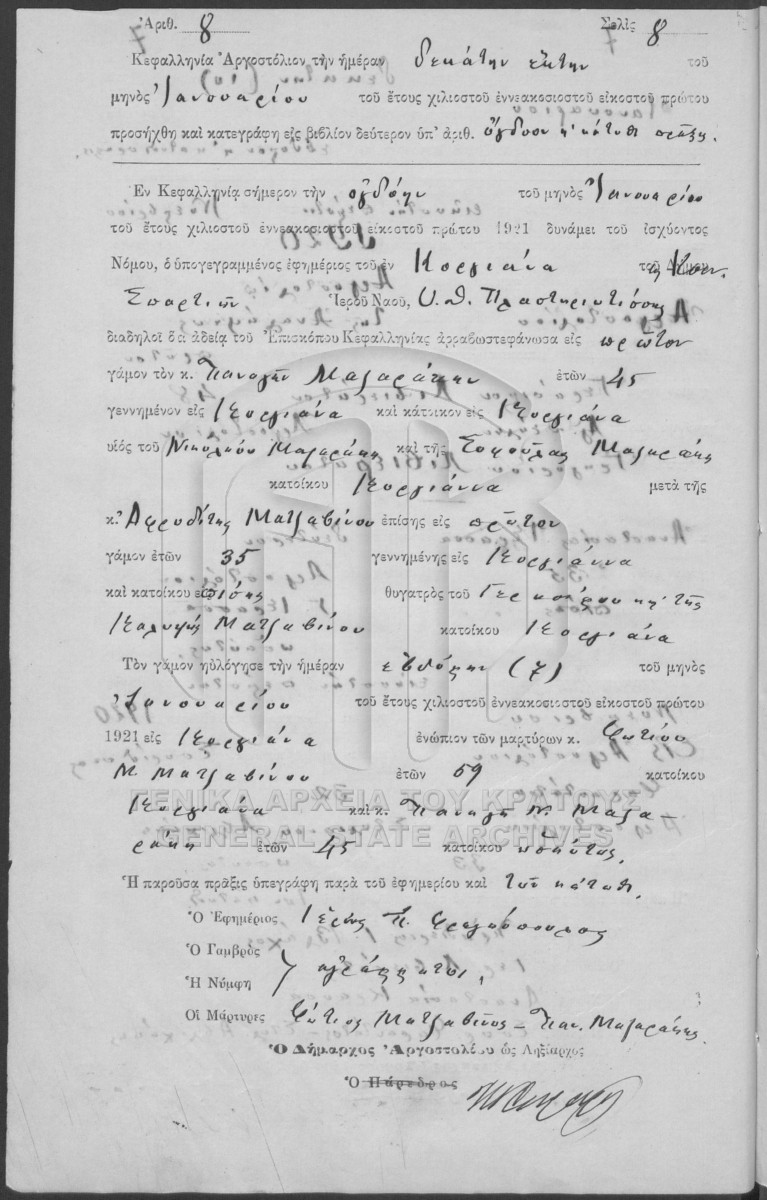 Ἀριθ. 8 Σελὶς 8
Κεφαλληνία Ἀργοστόλιον τὴν ἡμέραν δεκάτην ἕκτην τοῦ
μηνὸς Ἰανουαρίου τοῦ ἔτους χιλιοστοῦ ἐννεακοσιοστοῦ εἰκοστοῦ πρώτου
προσήχθη καὶ κατεγράφη εἰς βιβλίον δεύτερον ὑπ' ἀριθ. ὄγδοον ἡ κάτωθι πρᾶξις.
Ἐν Κεφαλληνίᾳ σήμερον τὴν ὀγδόην τοῦ μηνὸς Ἰανουαρίου
τοῦ ἔτους χιλιοστοῦ ἐννεακοσιοστοῦ εἰκοστοῦ πρώτου 1921 δυνάμει τοῦ ἰσχύοντος
Νόμου, ὁ ὑπογεγραμμένος ἐφημέριος τοῦ ἐν Κοργιάνα τῆς Κοιν.
Σπαρτιῶν Ἱεροῦ Ναοῦ, Υ. Θ. Πλαστηριωτίσσης
διαδηλοῖ ὅτι ἀδείᾳ τοῦ Ἐπισκόπου Κεφαλληνίας ἀρραβωστεφάνωσα εἰς πρῶτον
γάμον τὸν κ. Παναγῆν Μαζαράκην ἐτῶν 45
γεννημένον εἰς Κοργιάνα καὶ κάτοικον εἰς Κοργιάνα
υἱὸς τοῦ Νικολάου Μαζαράκη καὶ τῆς Μαζαράκη
κατοίκου Κοργιάννα μετὰ τῆς
κ. Ἀφροδίτης Ματζαβίνου ἐπίσης εἰς πρῶτον
γάμον ἐτῶν 35 γεννημένης εἰς Κοργιάννα
καὶ κατοίκου θυγατρὸς τοῦ Γερασίμου κ' τῆς
Ματζαβίνου κατοίκου Κοργιάνα
Τὸν γάμον ηὐλόγησε τὴν ἡμέραν ἑβδόμην (7) τοῦ μηνὸς
Ἰανουαρίου τοῦ ἔτους χιλιοστοῦ ἐννεακοσιοστοῦ εἰκοστοῦ πρώτου
1921 εἰς Κοργιάνα ἐνώπιον τῶν μαρτύρων κ. Φωτίου
Μ. Ματζαβίνου ἐτῶν 59 κατοίκου
Κοργιάνα καὶ κ. Παναγῆ Ν. Μαζα-
ράκη ἐτῶν 45 κατοίκου
Ἡ παροῦσα πρᾶξις ὑπεγράφη παρὰ τοῦ ἐφημερίου καὶ τῶν κάτωθι.
Ὁ Ἐφημέριος Ἱερεὺς Π.
Ὁ Γαμβρὸς
Ἡ Νύμφη ἀγράμματοι.
Οἱ Μάρτυρες Φώτιος Ματζαβῖνος – Παν. Μαζαράκης
Ὁ Δήμαρχος Ἀργοστολίου ὡς Ληξίαρχος
Ὁ Πάρεδρος
ΓΕΝΙΚΑ ΑΡΧΕΙΑ ΤΟΥ ΚΡΑΤΟΥΣ
GENERAL STATE ARCHIVES